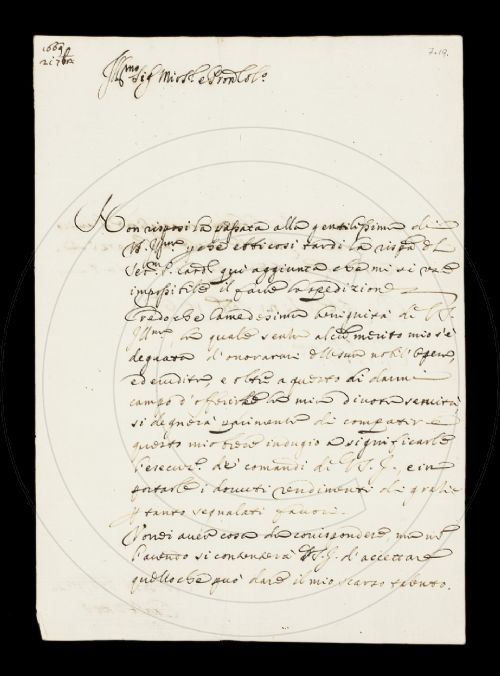 1669
21 7bre
7.19.
Illmo Sig Mio e Pron Colo
Non risposi la passata alla gentilissima di
V. Illma, che ebbi così tardi la rispa del
qui aggiunta che mi si rese
impossibile il farne la spedizione
Credo che la medesima benignità di V.S.
Illma la quale senza alcun merito mio s'è
degnata d'onorarmi dell'sua nobil' Opera,
ed erudita, e oltre a questo di darmi
campo d'offerirle la mia divota servitù
si degnerà parimente di compatir
questo mio breve indugio a significarle
l'esecuz.e de' comandi di V.S.I., e in
portarle i dovuti rendimenti di grazie
tanto segnalati favori.
Vorrei aver cosa da corrispondere, ma no
l'avendo si contenterà V.S.I. d'accettare
quello che può dare il mio scarso talento.